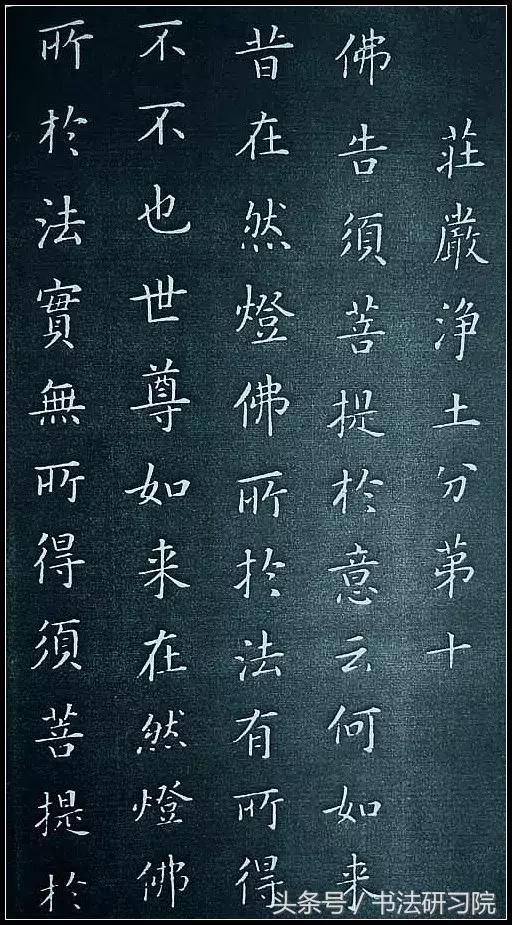 莊嚴淨土分第十
佛告須菩提於意云何如来
昔在然燈佛所於法有所得
不不也世尊如来在然燈佛
所於法實無所得須菩提於
头条号/书法研习院